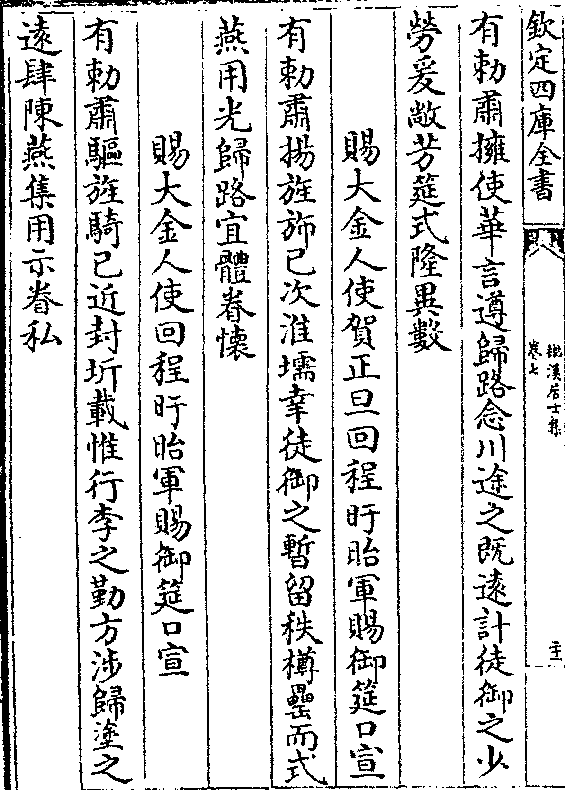 欽定四庫全書
卷七
有勅肅擁使華言遵歸路念川途之既遠計徒御之少
勞爰敞芳筵式隆異數
賜大金人使賀正旦回程盱眙軍賜御筵口宣
有勅肅揚旌斾已次淮壖幸徒御之暫留秩樽罍而式
燕用光歸路宜體眷懷
賜大金人使回程盱眙軍賜御筵口宣
有勅肅驅旌騎已近封圻載惟行李之勤方涉歸塗之
遠肆陳燕集用示眷私